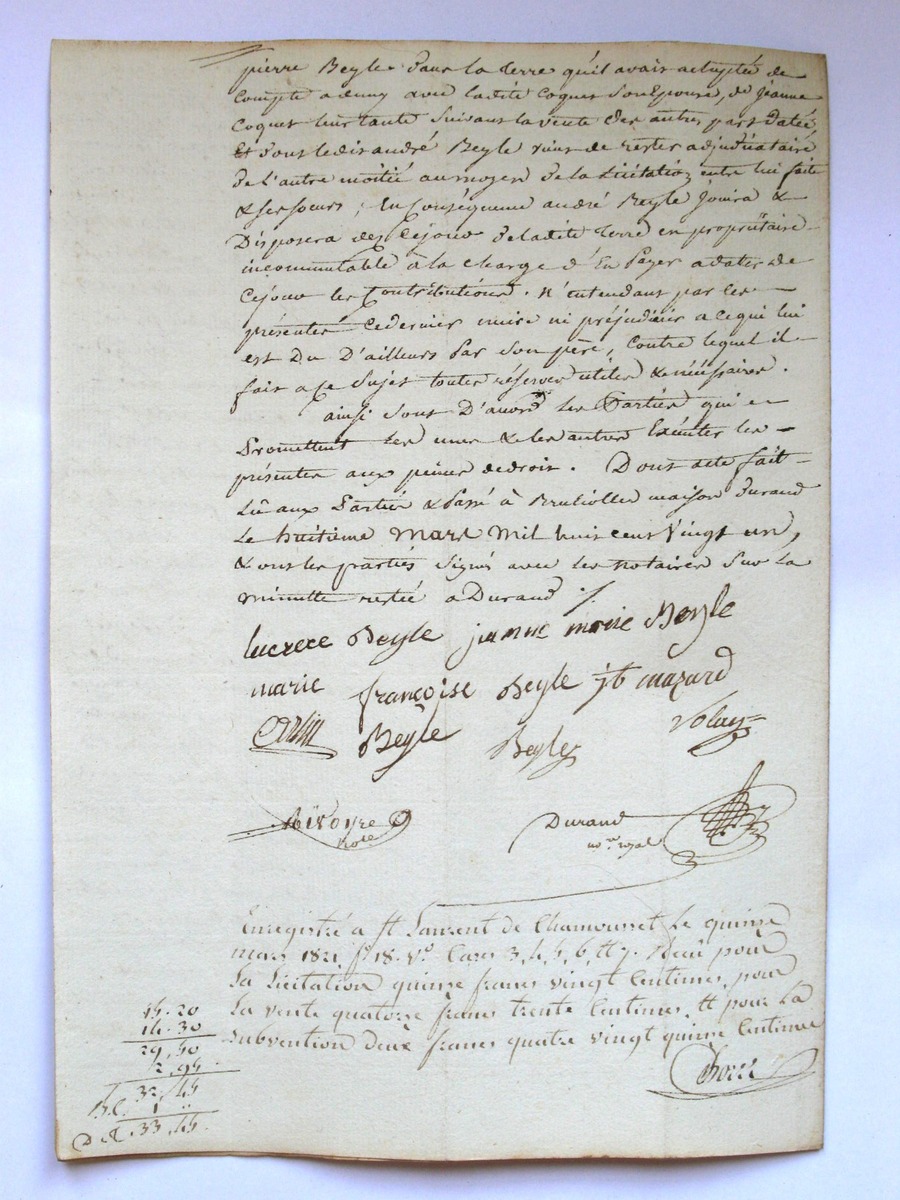 pierre Beyle dans la terre qu'il avait acheptée de
compte a demy avec ladite Coquet son Epouse, de jeanne
Coquet leur tante suivant la vente des autres parts datée,
Et dont ledit andré Beyle vient de rester adjudicataire
de l'autre moitié au moyen de la Licitation entre lui faite
& ses soeurs; En Conséquence andré Beyle jouira &
Disposera dès Cejour de ladite terre en propriétaire
incommutable à la charge d'En payer a dater de
Cejour les Contributions. N'entendant par ces
présentes ce dernier nuire ni préjudicier a ce qui lui
est Du D'ailleurs par son père, contre lequel il
fait a ce sujet toutes réserves utiles & nécessaires.
ainsi sont D'accord les Parties qui
Promettent les unes & les autres Exécuter les
présentes aux peines de droit. Dont acte fait
Lû aux Parties & Passé à Brullioles maison Durand
Le huitième mars mil huit cent vingt un,
& ont les parties signé avec les notaires sur la
minutte restée a Durand ./.
lucrece Beyle jeanne marie Beyle
marie françoise Beyle jb mazard
Beyle Beyle
Durand
no.re royal
Enregistré a St Laurent de Chamousset le quinze
mars 1821 f° 18. v° Cases 3, 4, 5, 6, Et 7. Reçu pour
La Licitation quinze francs vingt Centimes, pour
La vente quatorze francs trente Centimes, Et pour la
Subvention deux francs quatre vingt quinze Centimes
15.20
14.30
29,50
2,95
32,45
1 "
33,45